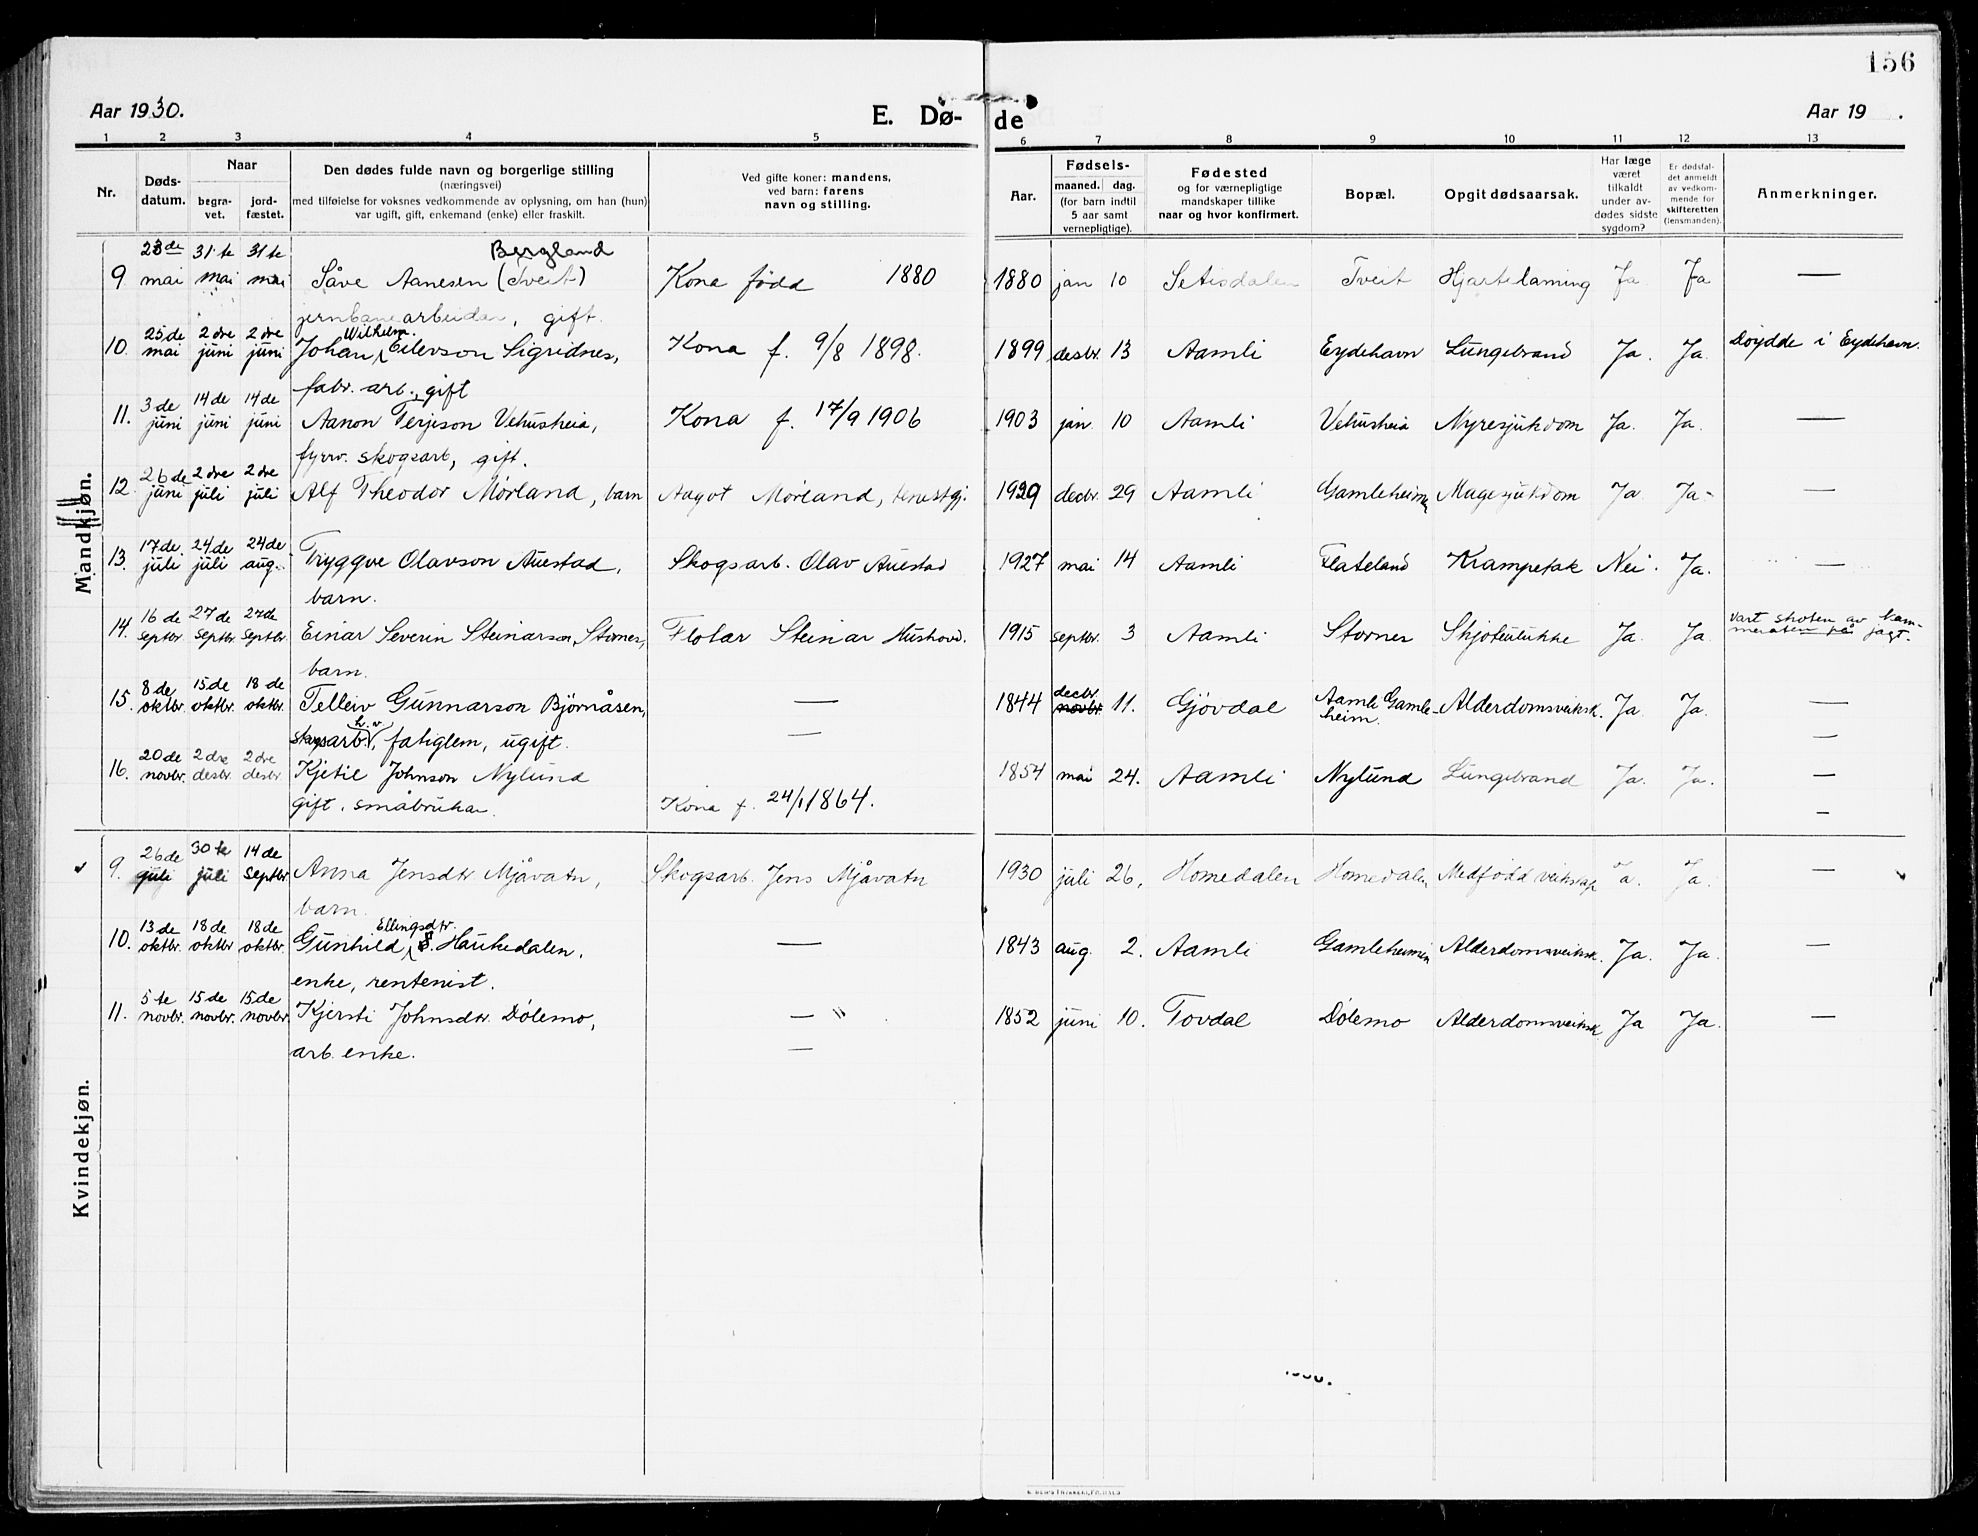 156
Aar 1930.
E. Dø-de
Aar 19 .
1 2 3 4 5 6 7 8 9 10 11 12 13
Nr.
Døds-datum.
Naar
begra-vet.
jord-fæstet.
Den dødes fulde navn og borgerlige stilling
(næringsvei)
med tilføielse for voksnes vedkommende av oplysning, om han (hun)
var ugift, gift, enkemand (enke) eller fraskilt.
Ved gifte koner: mandens,
ved barn: farens
navn og stilling.
Aar.
Fødsels-
maaned. dag.
(for barn indtil
5 aar samt
vernepligtige).
Fødested
og for værnepligtige
mandskaper tillike
naar og hvor konfirmert.
Bopæl.
Opgit dødsaarsak.
Har læge
været
tilkaldt
under av-
dødes sidste
sygdom?
Er dødsfal-
det anmeldt
av vedkom-
mende for
skifteretten
(lensmanden).
Anmerkninger.
Mandkjøn.
Bergland
9. 23de mai 31te mai 31te mai Såve Aanesen (Tveit) Kona fødd 1880 1880 jan 10 Setisdalen Tveit Hjartelaming Ja Ja —
jernbanearbeidar, gift.
Wilhelm.
10. 25de mai 2dre juni 2dre juni Johan Eilevson Sigridnes, Kona f. 9/8 1898. 1899 desbr. 13 Aamli Eydehavn Lungebrand Ja. Ja. Døydde i Eydehavn.
fabr. arb., gift
11. 3de juni 14de juni 14de juni Aanon Terjeson Vehusheia, Kona f. 17/9 1906 1903 jan. 10 Aamli Vehusheia Nyresjukdom Ja. Ja. —
fyrrv. skogsarb, gift.
12. 26de juni 2dre juli 2dre juli Alf Theodor Mørland, barn Aagot Mørland, tenestgj. 1929 decbr. 29 Aamli Gamleheimen Magesjukdom Ja. Ja. —
13. 17de juli 24de juli 24de aug. Tryggve Olavson Auestad, Skogsarb. Olav Auestad 1927 mai 14 Aamli Flateland Krampetak Nei. Ja. —
barn.
14. 16de septbr. 27de septbr. 27de septbr. Einar Severin Steinarson Stovnes, Flotar Steinar Hushovd. 1915 septbr. 3 Aamli Stovnes Skjotulukke Ja. Ja. Vart skoten av kam-
meraten på jagt.
barn.
15. 8de oktbr. 15de oktbr. 18de oktbr. Telleiv Gunnarson Bjørnåsen, — 1844 novbr. decbr. 11. Gjøvdal Aamli Gamle-heim. Alderdomsveiksk. Ja. Ja. —
skogsarb., fatiglem, ugift. — —
16. 20de novbr. 2dre desbr. 2dre desbr. Kjetil Johnson Nylund 1854 mai 24. Aamli Nylund Lungebrand Ja. Ja. —
gift, småbrukar. Kona f. 24/1 1864. —
Kvindekjøn.
9. 26de juli 30te juli 14de septbr Anna Jensdtr Mjåvatn, Skogsarb. Jens Mjåvatn 1930 juli 26. Homedalen Homedalen Medfødd veikskap Ja. Ja. —
barn.
Ellingsdtr.
10. 13de oktbr. 18de oktbr. 18de oktbr Gunhild Haukedalen, — 1843 aug. 2. Aamli Gamleheimen Alderdomsveiksk. Ja. Ja. —
enke, rentenist.
11. 5te novbr. 15de novbr. 15de novbr. Kjersti Johnsdtr. Dølemo, — 1852 juni 10. Tovdal Dølemo Alderdomsveiksk. Ja Ja. —
arb. enke. —